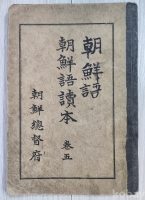 朝鮮語
朝鮮語讀本 卷五
朝鮮總督府